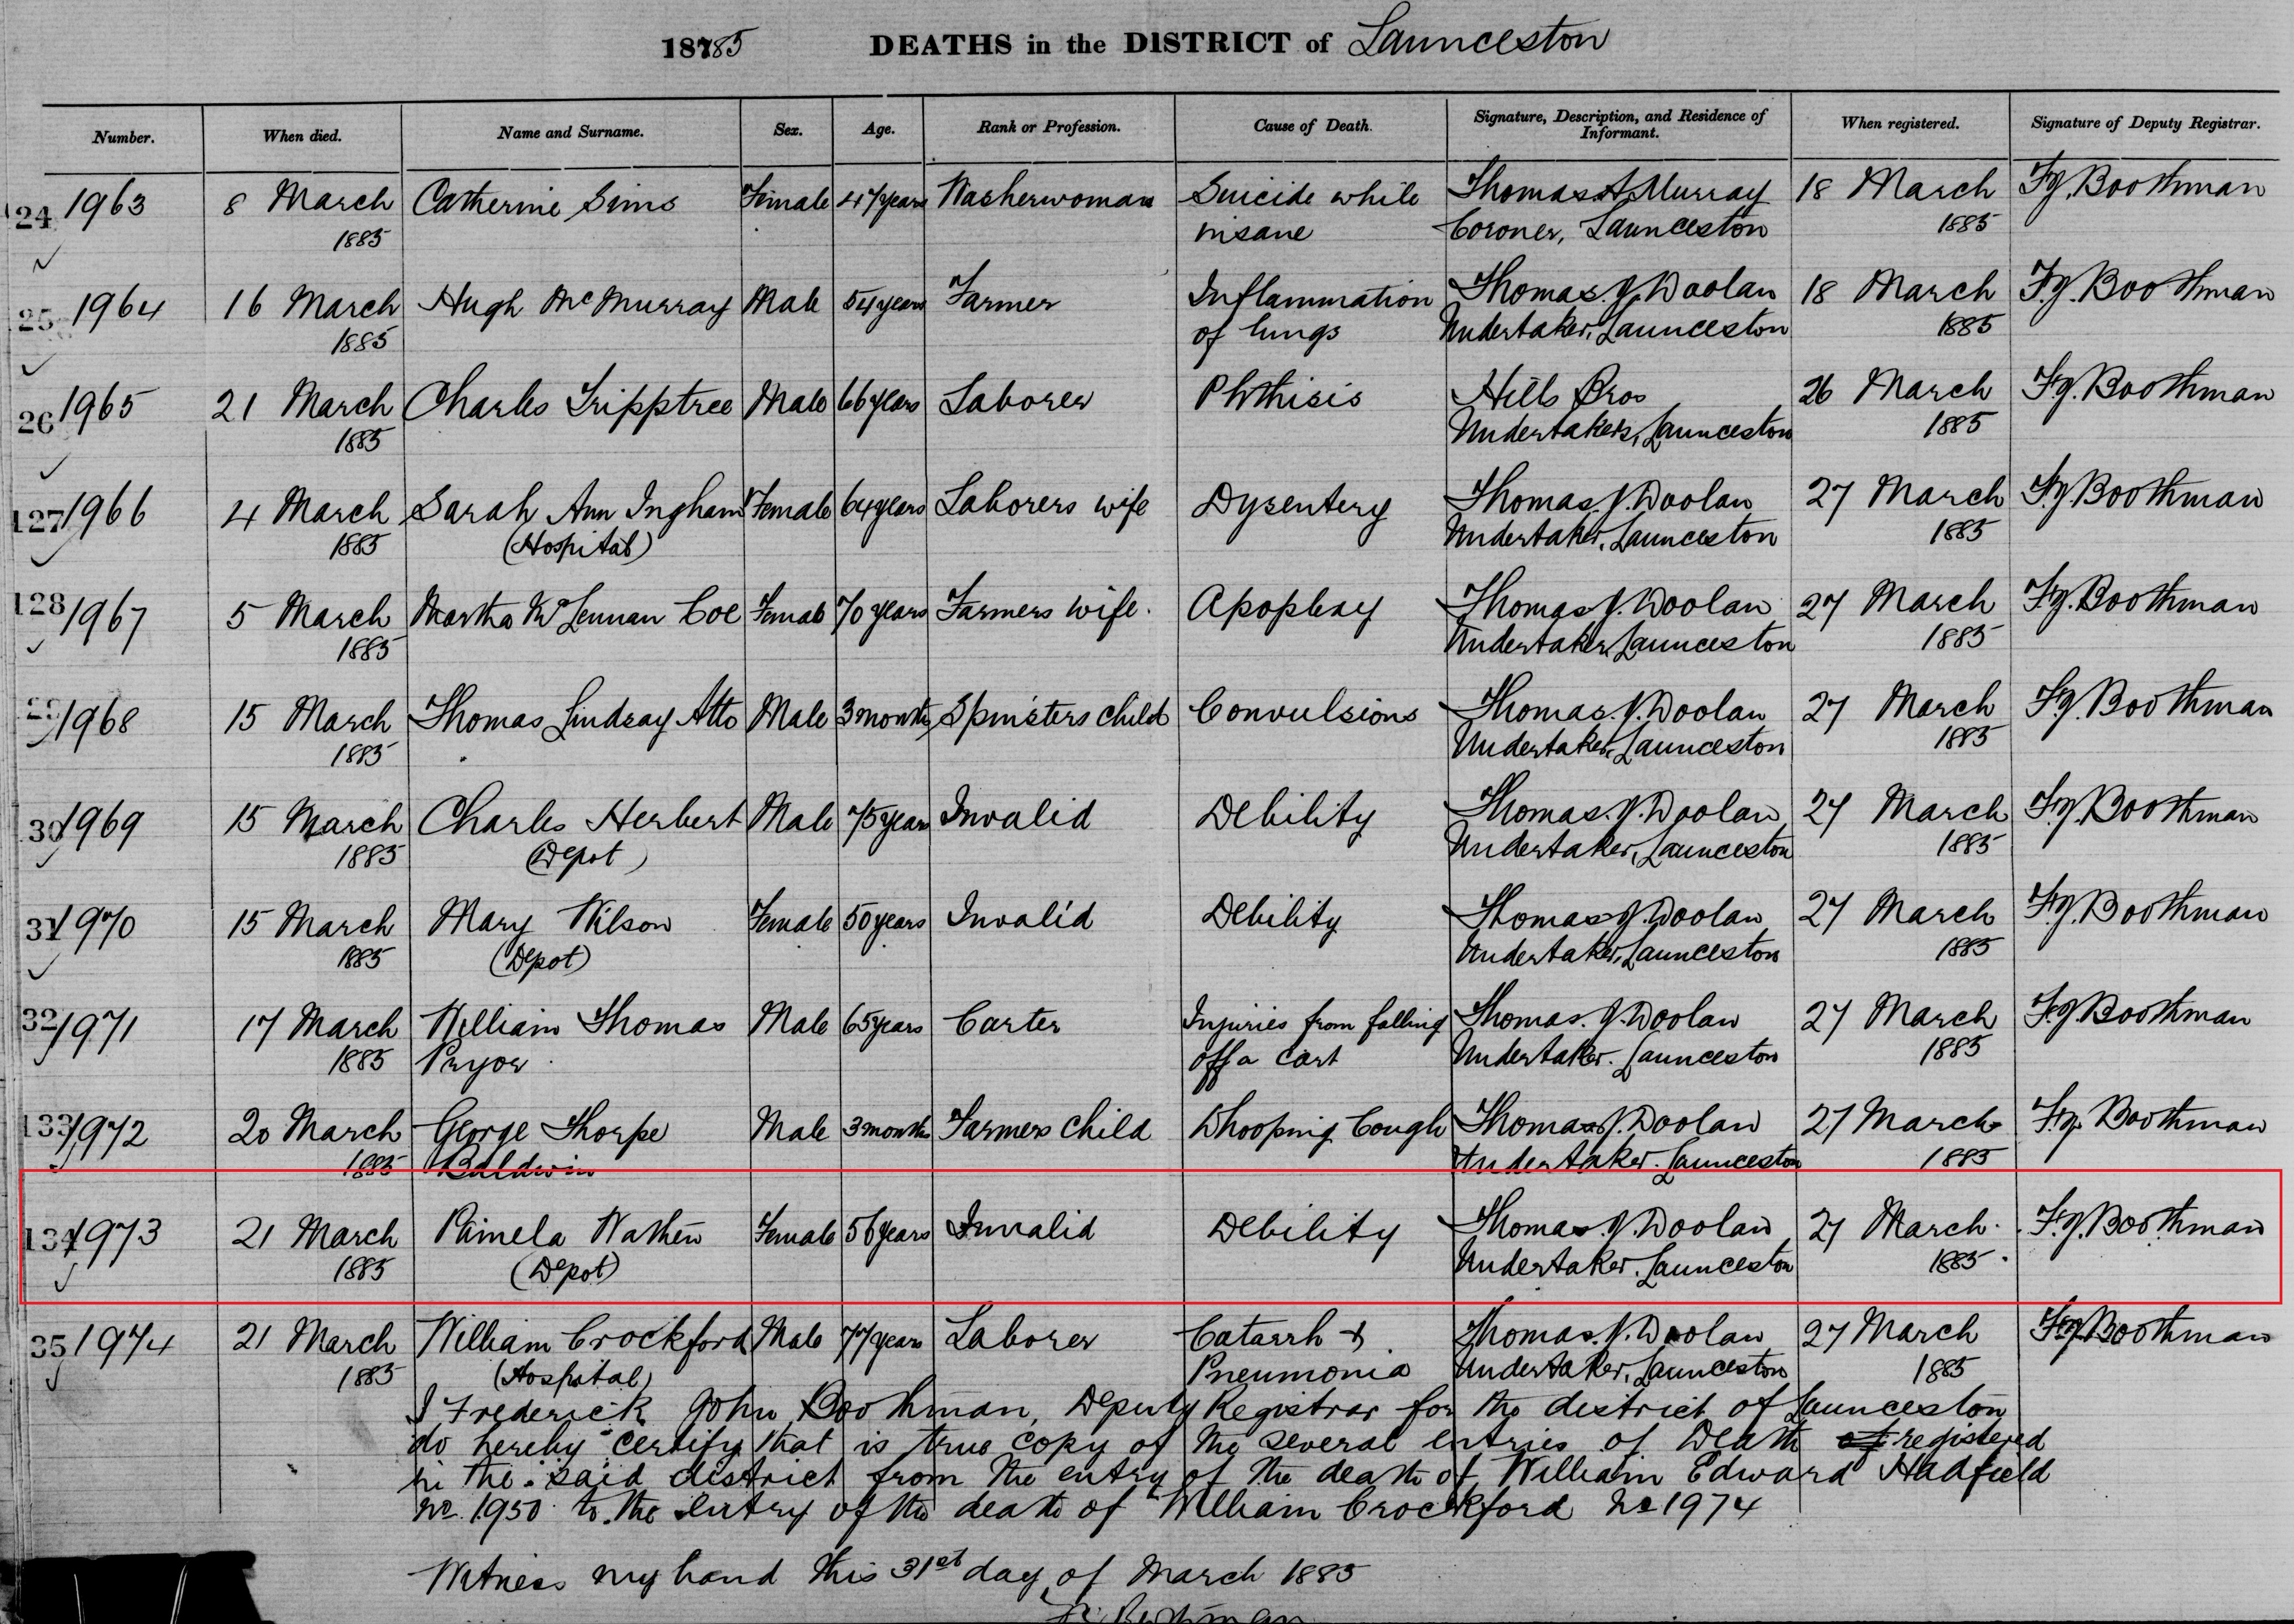 18785 DEATHS in the DISTRICT of Launceston
Number. When died. Name and Surname. Sex. Age. Rank or Profession. Cause of Death. Signature, Description, and Residence of Informant. When registered. Signature of Deputy Registrar.
24 1963 8 March Catherine Sims Female 47 years Washerwoman Suicide while Thomas A Murray 18 March F.J. Boothman
1885 insane Coroner, Launceston 1885
25 1964 16 March Hugh McMurray Male 54 years Farmer Inflammation Thomas. J. Doolan 18 March F.J. Boothman
1885 of lungs Undertaker, Launceston 1885
26 1965 21 March Charles Tripptree Male 66 years Laborer Phthisis Hills Bros 26 March F.J. Boothman
1885 Undertakers, Launceston 1885
127 1966 4 March Sarah Ann Ingham Female 64 years Laborers wife Dysentery Thomas. J. Doolan 27 March F.J. Boothman
1885 (Hospital) Undertaker, Launceston 1885
128 1967 5 March Martha McLennan Coe Female 70 years Farmers wife. Apoplexy Thomas J. Doolan 27 March F.J. Boothman
1885 Undertaker, Launceston 1885
29 1968 15 March Thomas Lindsay Atto Male 3 months Spinsters child Convulsions Thomas. J. Doolan 27 March F.J. Boothman
1885 Undertaker, Launceston 1885
30 1969 15 March Charles Herbert Male 75 years Invalid Debility Thomas. J. Doolan 27 March F.J. Boothman
1885 (Depot) Undertaker, Launceston 1885
31 1970 15 March Mary Wilson Female 50 years Invalid Debility Thomas J. Doolan 27 March F.J. Boothman
1885 (Depot) Undertaker, Launceston 1885
32 1971 17 March William Thomas Male 65 years Carter Injuries from falling Thomas. J. Doolan 27 March F.J. Boothman
1885 Pryor off a cart Undertaker. Launceston 1885
133 1972 20 March George Thorpe Male 3 months Farmers child Whooping Cough Thomas J. Doolan 27 March F.J. Boothman
1885 Baldwin Undertaker. Launceston 1885
134 1973 21 March Pamela Wathen Female 56 years Invalid Debility Thomas. J. Doolan 27 March F.J. Boothman
1885 (Depot) Undertaker. Launceston 1885
35 1974 21 March William Crockford Male 77 years Laborer Catarrh & Thomas. J. Doolan 27 March F.J. Boothman
1885 (Hospital) Pneumonia Undertaker, Launceston 1885
I Frederick John Boothman, Deputy Registrar for the district of Launceston
do hereby certify that is true copy of the several entries of Death of registered
in the said district from the entry of the death of William Edward Hadfield
No. 1950 to the entry of the death of William Crockford No 1974
Witness my hand this 31st day of March 1885